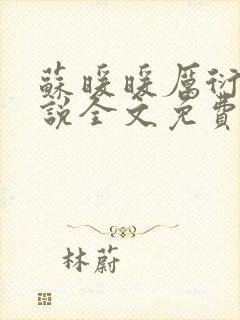 蘇暖暖厲衍
說全文免費
林蔚